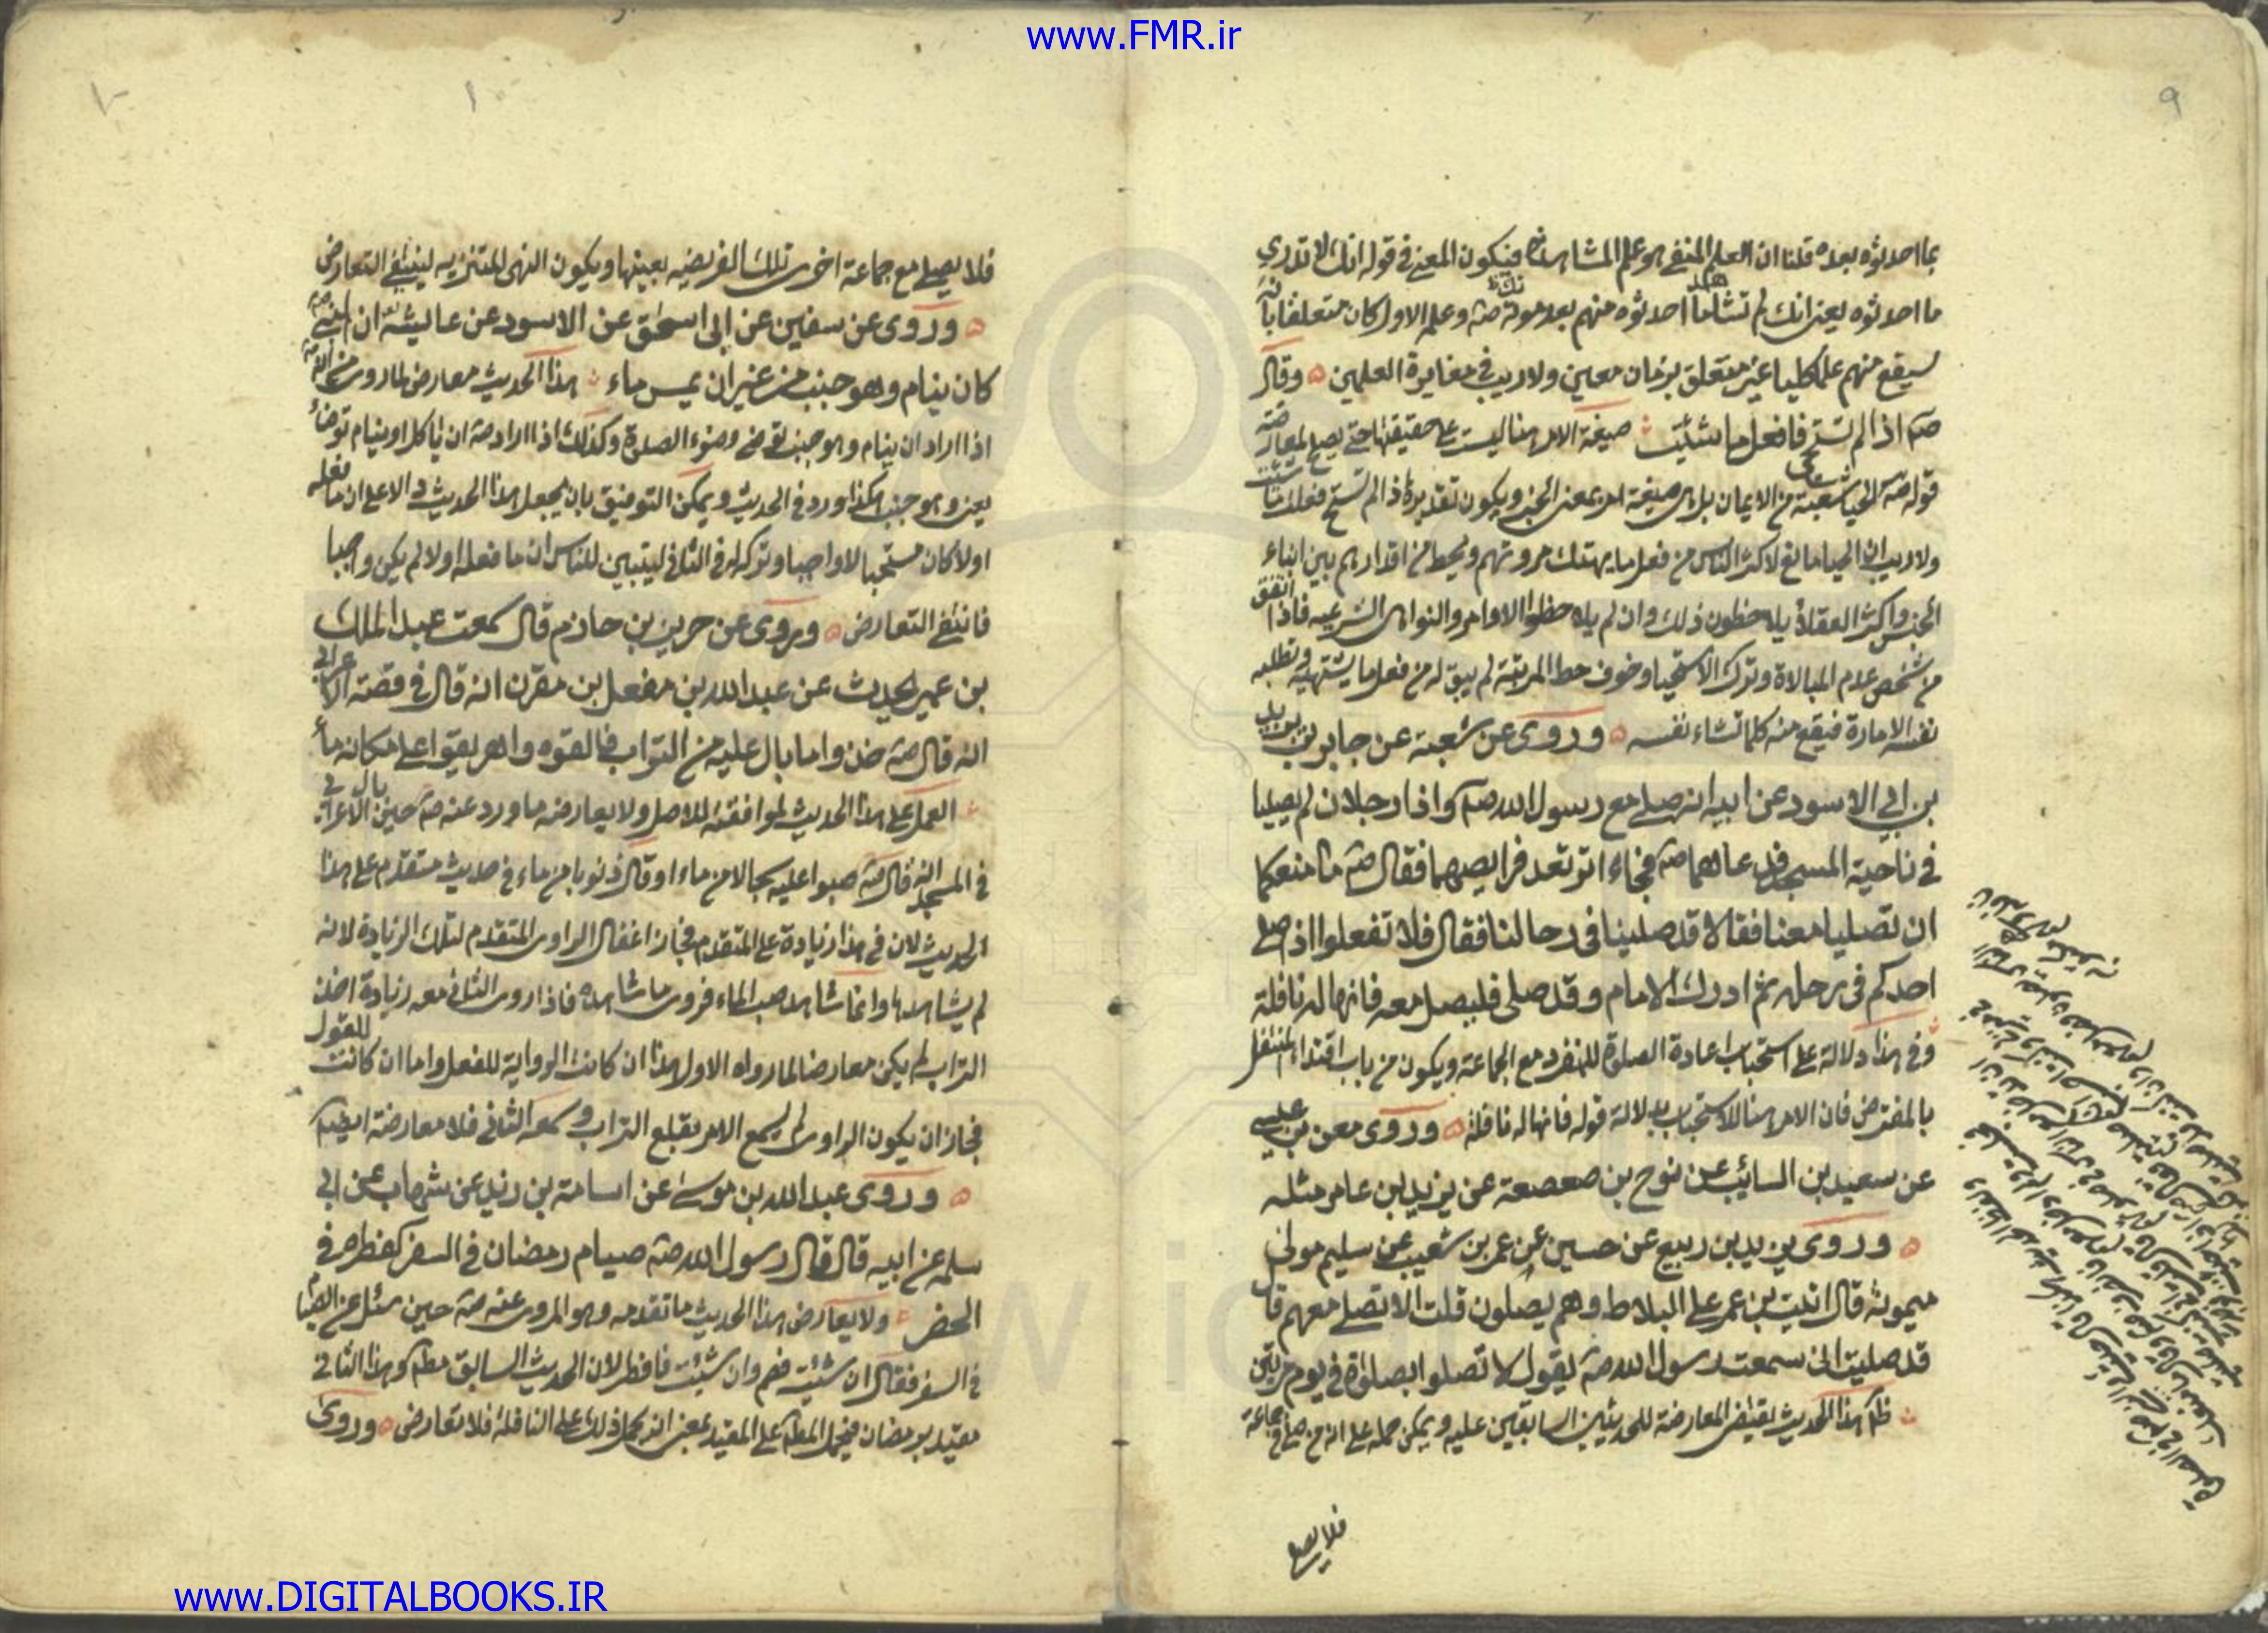 www.FMR.ir
٩
بما احدثوه بعده قلنا ان العلم المنفي هو علم المشاهدة فيكون المعنى في قوله انك لا تدري
ما احدثوه يعني انك لم تشاهد ما احدثوه منهم بعد موتك صه وعلمه الاول كان متعلقا بانه
سيقع منهم علما كليا غير متعلق بزمان معين ولا ريب في مغايرة العلمين ه وقال
صه اذا لم تستح فافعل ما شئت صيغة الامر هنا ليست على حقيقتها حتى يصح لمعارضة
قوله صه الحيا شعبة من الايمان بل هي صيغة امر بمعنى الخبر ويكون تقديره اذا لم تستح فعلت ما شئت
ولا ريب ان الحيا مانع لاكثر الناس من فعل ما يهتك مروتهم ويحط من اقدارهم بين ابناء
الجنس واكثر العقلاء يلاحظون ذلك وان لم يلاحظوا الاوامر والنواهي الشرعيه فاذا اتفق
من شخص عدم المبالاة وترك الاستحيا وخوف حط المرتبة لم يبق له من فعل ما يشتهيه وتطلبه
نفسه الامارة فيقع منه كلما تشاء نفسه ه وروى عن شعبة عن جابر بن يزيد
بن ابي الاسود عن ابيه انه صلى مع رسول الله صه واذا رجلان لم يصليا
في ناحية المسجد فدعاهما صه فجاءا ترتعد فرايصهما فقال صه ما منعكما
ان تصليا معنا فقالا قد صلينا في رحالنا فقال فلا تفعلوا اذ صلى
احدكم في رحله ثم ادرك الامام وقد صلى فليصل معه فانها له نافلة
وفي هذا دلالة على استحباب اعادة الصلوة للمنفرد مع الجماعة ويكون من باب اقتداء المتنفل
بالمفترض فان الامر هنا للاستحباب بدلالة قوله فانها له نافلة ه وروى معن بن عيسى
عن سعيد بن السائب عن نوح بن صعصعة عن يزيد بن عامر مثله
ه وروى يزيد بن ربيع عن حسين عن عمر بن شعيب عن سليم مولى
ميمونة قال اتيت بن عمر على البلاط وهم يصلون قلت الا تصلي معهم قال
قد صليت اني سمعت رسول الله صه يقول لا تصلوا بصلوة في يوم مرتين
هذا الحديث يقتضي المعارضة للحديثين السابقين عليه ويمكن حمله على انه من صلى في جماعة
فلا يصلي
فلا يصلي مع جماعة اخرى تلك الفريضه بعينها ويكون النهي للتنزيه لينتفي التعارض
ه وروى عن سفين عن ابي اسحق عن الاسود عن عايشة ان النبي صه
كان ينام وهو جنب من غير ان يمس ماء هذا الحديث معارض لما روي من انه صه
اذا اراد ان ينام وهو جنب توضى وضوء الصلوة وكذلك اذا اراد صه ان ياكل او ينام توضأ
يعني وهو جنب هكذا ورد في الحديث ويمكن التوفيق بان يجعل هذا الحديث دالا على ان ما فعله
اولا كان مستحبا لا واجبا وتركه في الثاني ليتبين للناس ان ما فعله اولا لم يكن واجبا
فانتفى التعارض ه وروى عن جرير بن حازم قال سمعت عبد الملك
بن عمير يحدث عن عبد الله بن مفعل بن مقرن انه قال في قصة الاعرابي
انه قال صه خذوا ما بال عليه من التراب فالقوه واهريقوا على مكانه ماء
العمل على هذا الحديث لموافقته للاصل ولا يعارضه ما ورد عنه صه حين بال الاعرابي
في المسجد انه قال صه صبوا عليه سجالا من ماء او قال ذنوبا من ماء في حديث متقدم على هذا
الحديث لان في هذا زيادة على المتقدم فجاز اغفال الراوي المتقدم لتلك الزيادة لانه
لم يشاهدها وانما شاهد صب الماء فروى ما شاهده فاذا روى الثاني معه زيادة اخذ
التراب لم يكن معارضا لما رواه الاول هذا ان كانت الرواية للفعل واما ان كانت للقول
فجاز ان يكون الراوي لم يسمع الامر بقلع التراب وسمعه الثاني فلا معارضة ايضا
ه وروى عبد الله بن موسى عن اسامة بن زيد عن شهاب عن ابي
سلمه عن ابيه قال قال رسول الله صه صيام رمضان في السفر كفطره في
الحضر ولا يعارض هذا الحديث ما تقدمه وهو المروي عنه صه حين سئل عن الصيام
في السفر فقال ان شئت فصم وان شئت فافطر لان الحديث السابق مطلق وهذا الثاني
مقيد برمضان فيحمل المطلق على المقيد بمعنى انه يحمل ذلك على النافلة فلا تعارض ه وروى
www.DIGITALBOOKS.IR